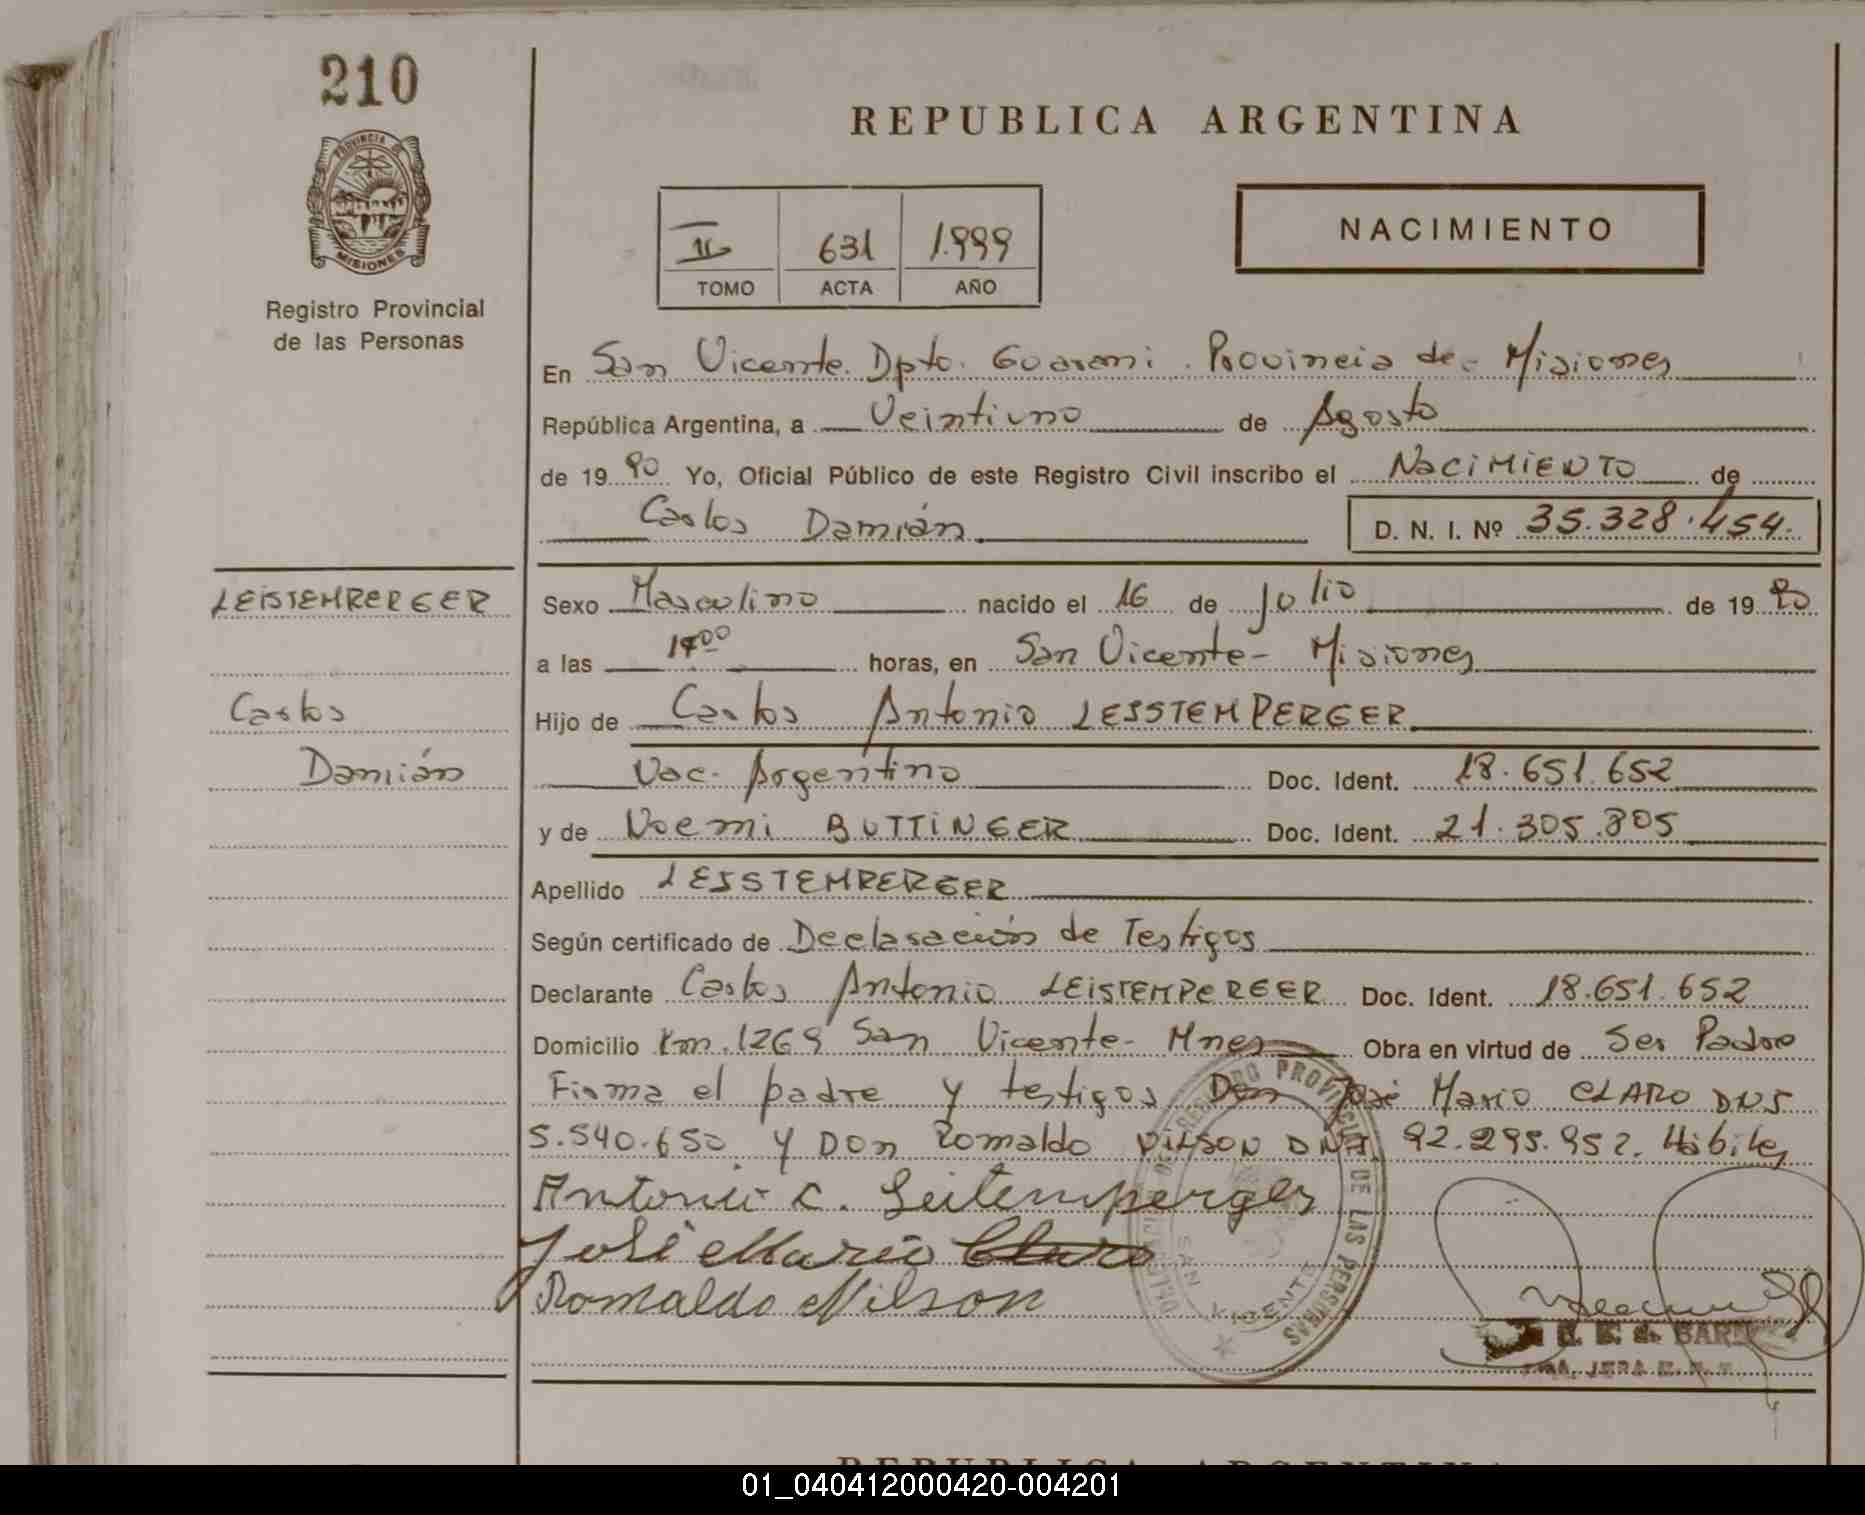 210
REPUBLICA ARGENTINA
PROVINCIA DE
MISIONES
Registro Provincial
de las Personas
II 631 1.999
TOMO ACTA AÑO
NACIMIENTO
En San Vicente. Dpto. Guarani. Provincia de- Misiones
República Argentina, a Veintiuno de Agosto
de 19 90 Yo, Oficial Público de este Registro Civil inscribo el NACIMIENTO de
Carlos Damián D. N. I. Nº 35.328.454.
LEISTEMPERGER
Sexo Masculino nacido el 16 de Julio de 19 90
a las horas, en San Vicente- Misiones
Carlos
Hijo de Carlos Antonio LEISTEMPERGER
Damián
Nac. Argentino Doc. Ident. 18.651.652
y de Noemi BUTTINGER Doc. Ident. 21.305.805
Apellido LEISTEMPERGER
Según certificado de Declaración de Testigos
Declarante Carlos Antonio LEISTEMPERGER Doc. Ident. 18.651.652
Domicilio Km. 1269 San Vicente- Mnes Obra en virtud de Ser Padre
Firma el padre y testigos Don José Mario CLARO DNI
5.540.650. y DON Romaldo NILSON DNI. 92.295.952. Hábiles
Antonio C. Leitemperger
José Mario Claro
Romaldo Nilson
REGISTRO PROVINCIAL DE LAS PERSONAS
SAN VICENTE
REPUBLICA ARGENTINA
01_040412000420-004201